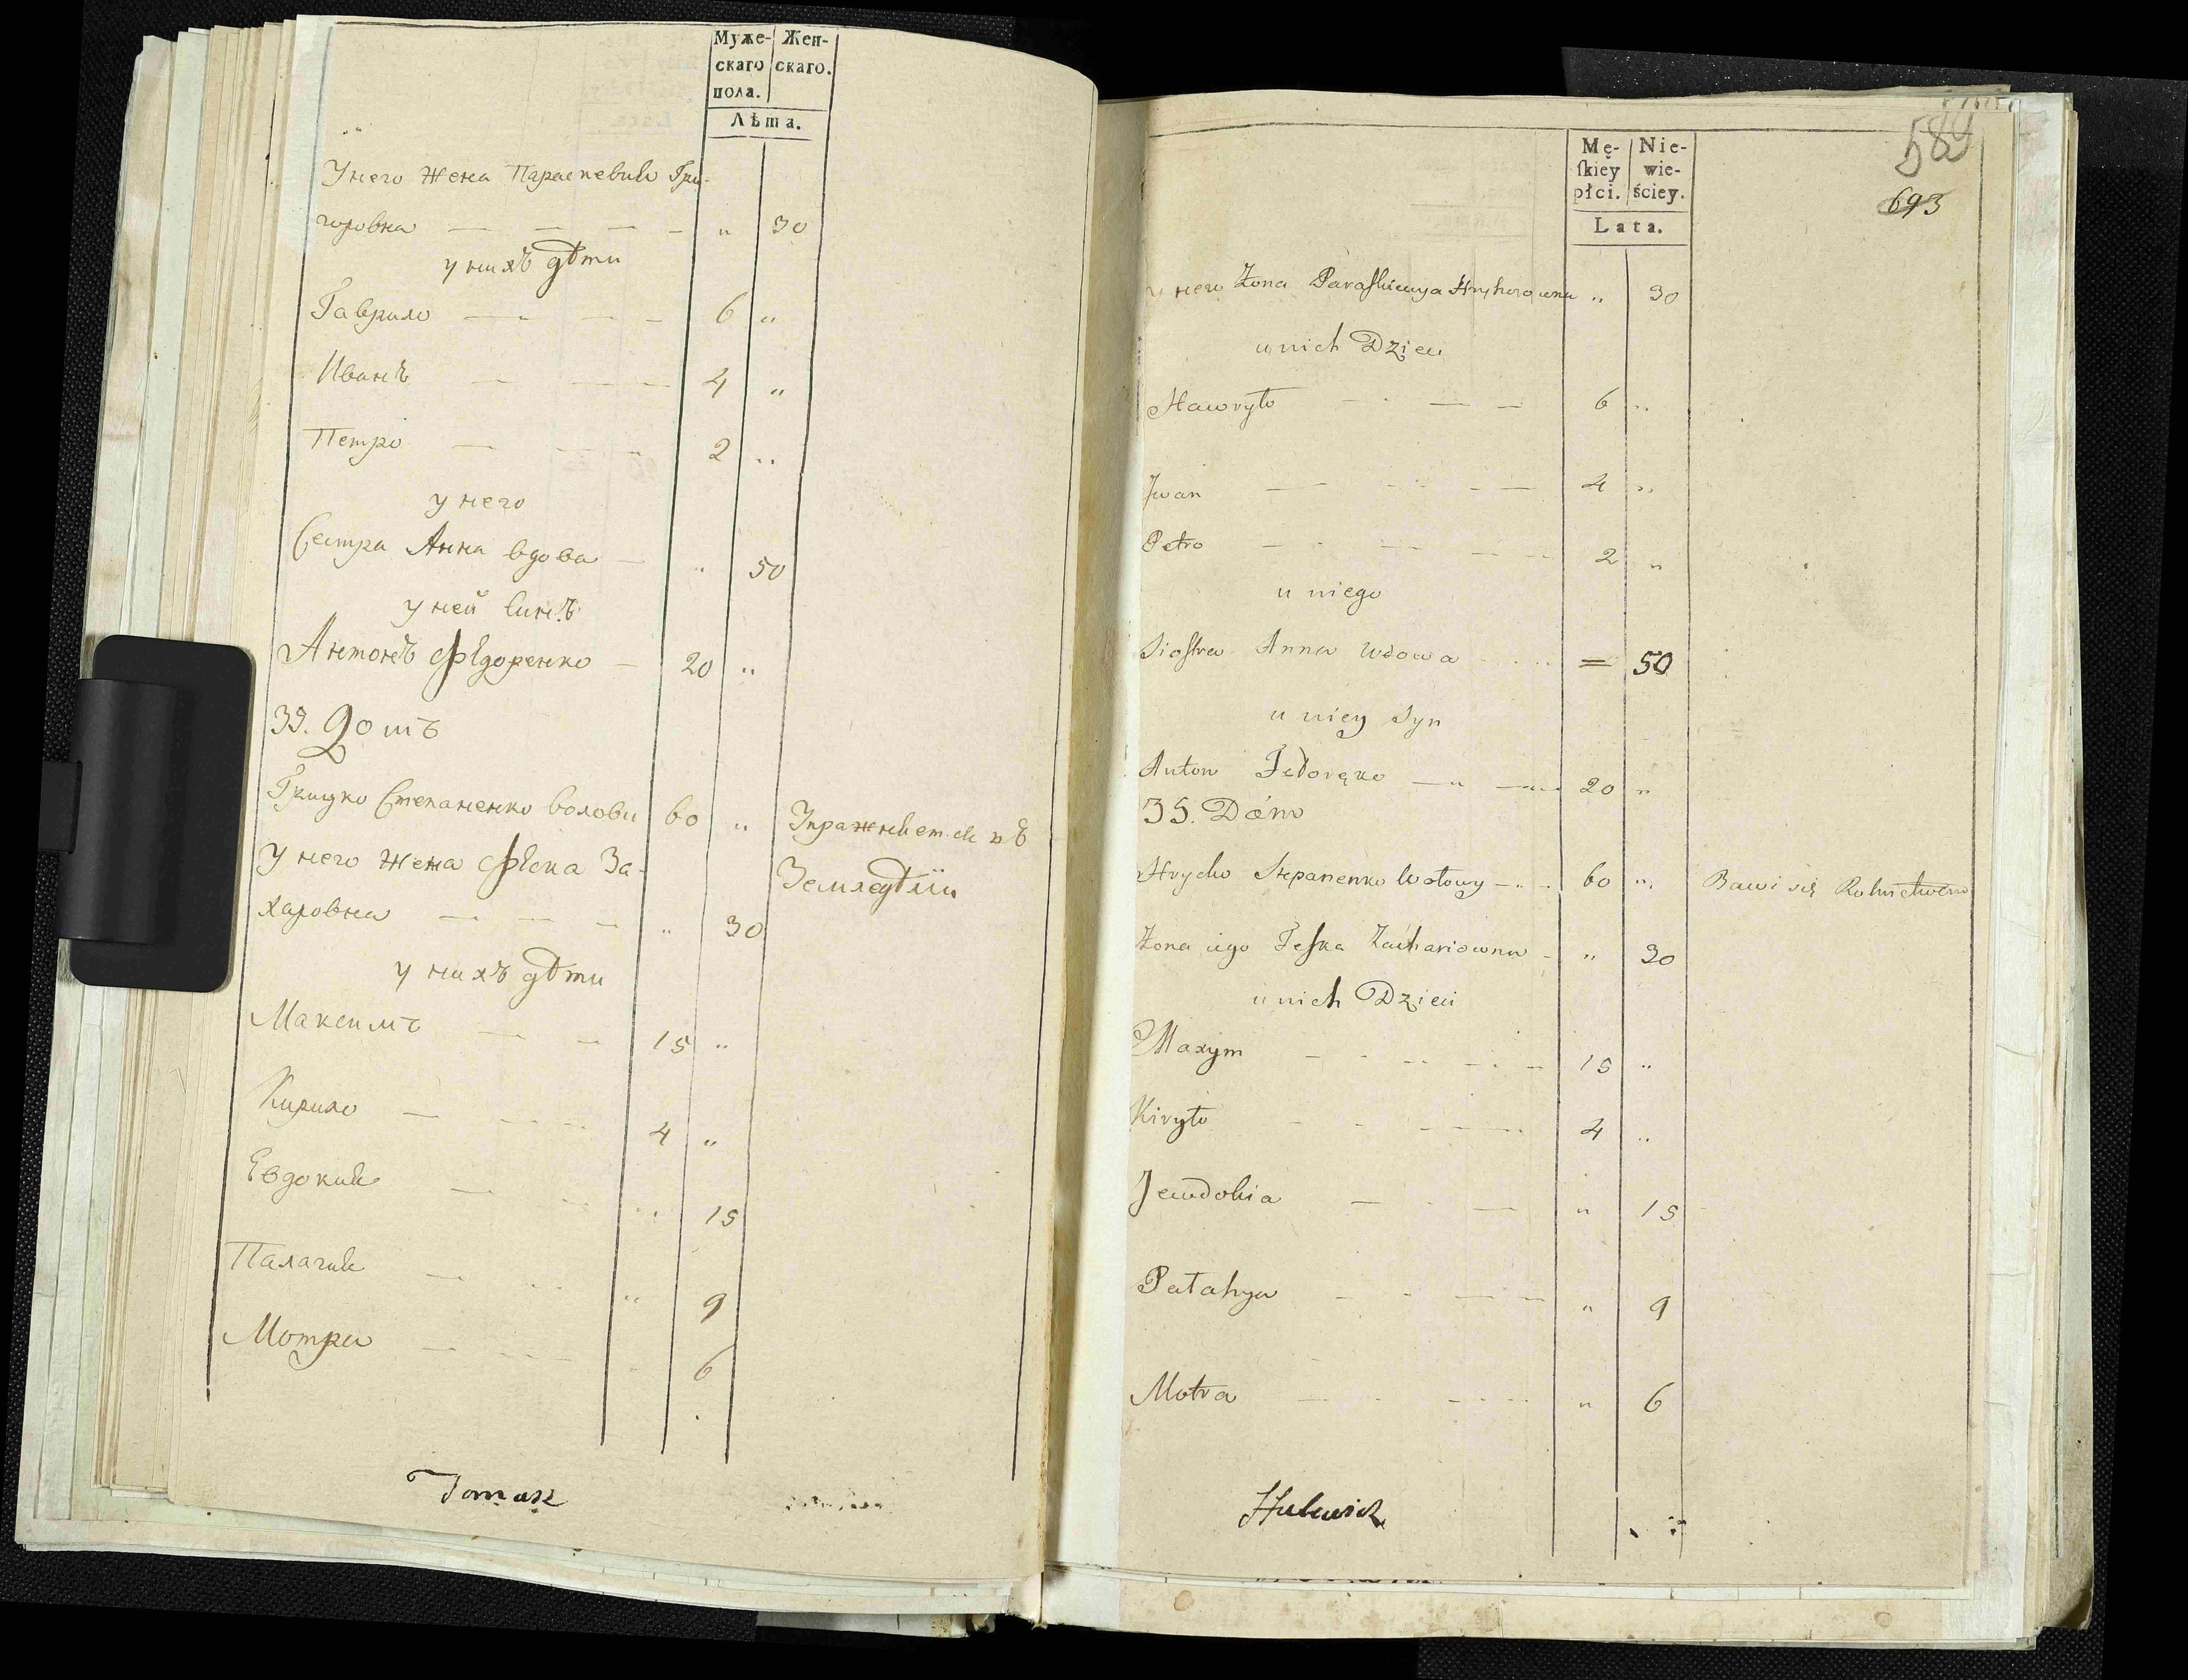 Муже- Жен-
скаго скаго.
пола.
Лѣта.
У него жена Параскевия Гри-
горовна — — — — " 30
у нихъ дѣти
Гаврило — — — 6 "
Иванъ — — — 4 "
Петро — — — 2 "
у него
Сестра Анна вдова — " 50
у ней синъ
Антонъ Федоренко — 20 "
35. Домъ
Грицко Степаненко волови 60 " Упражняется въ
У него жена Феска За- Земледѣлiи
харовна — — — " 30
у нихъ дѣти
Максимъ — — 15 "
Кирило — — 4 "
Евдокия — — " 15
Палагия — — " 9
Мотря — — " 6
Tomasz
589
693
Mę- Nie-
ſkiey wie-
płci. ściey.
Lata.
у него Żona Paraſkiewya Hryhorowna " 30
u nich Dzieci
Hawryło — — — 6 "
Jwan — — — 4 "
Petro — — — 2 "
u niego
Siostra Anna Wdowa = 50
u niey Syn
Anton Fedoręko — — 20 "
35. Dóm
Hrycko Stepanenko Wołowy — 60 " Bawi się Rolnictwem
Żona iego Feſka Zachariowna - " 30
u nich Dzieci
Maxym — — — 15 "
Kiryło — — — 4 "
Jewdokia — — " 15
Pałahya — — — " 9
Motra — — — " 6
Hulewicz